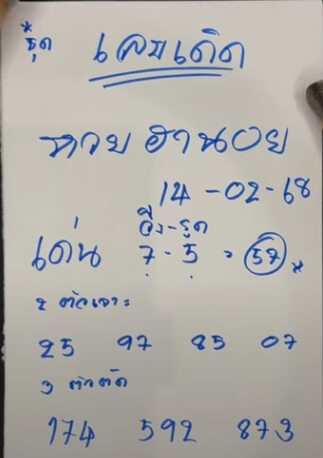 * ชุด เลขเด็ด
หวย ฮานอย
14-02-68
วิ่ง-รูด
เด่น 7-5 > 57 *
2 ตัวเจาะ
25 97 85 07
3 ตัวตัด
174 592 873